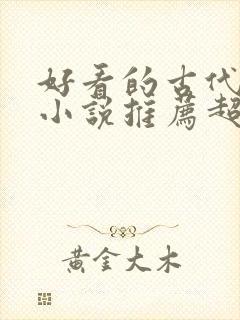 好看的古代
小說推薦超
黃金大木